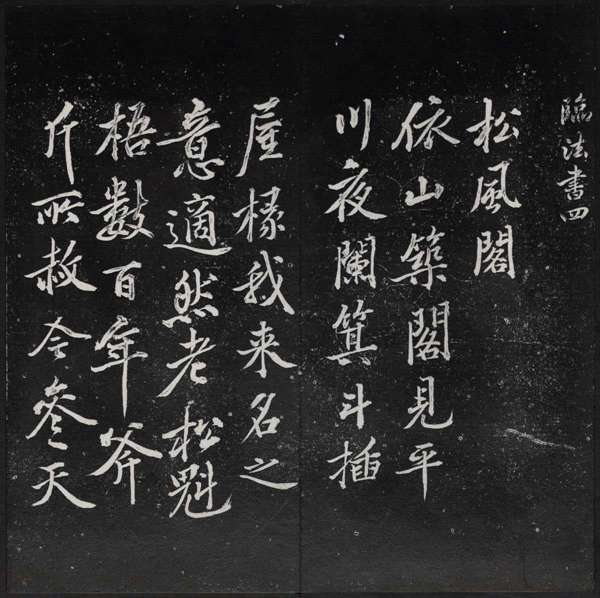 臨法書四
松風閣
依山築閣見平
川夜闌箕斗插
屋椽我来名之
意適然老松魁
梧數百年斧
斤所赦今參天